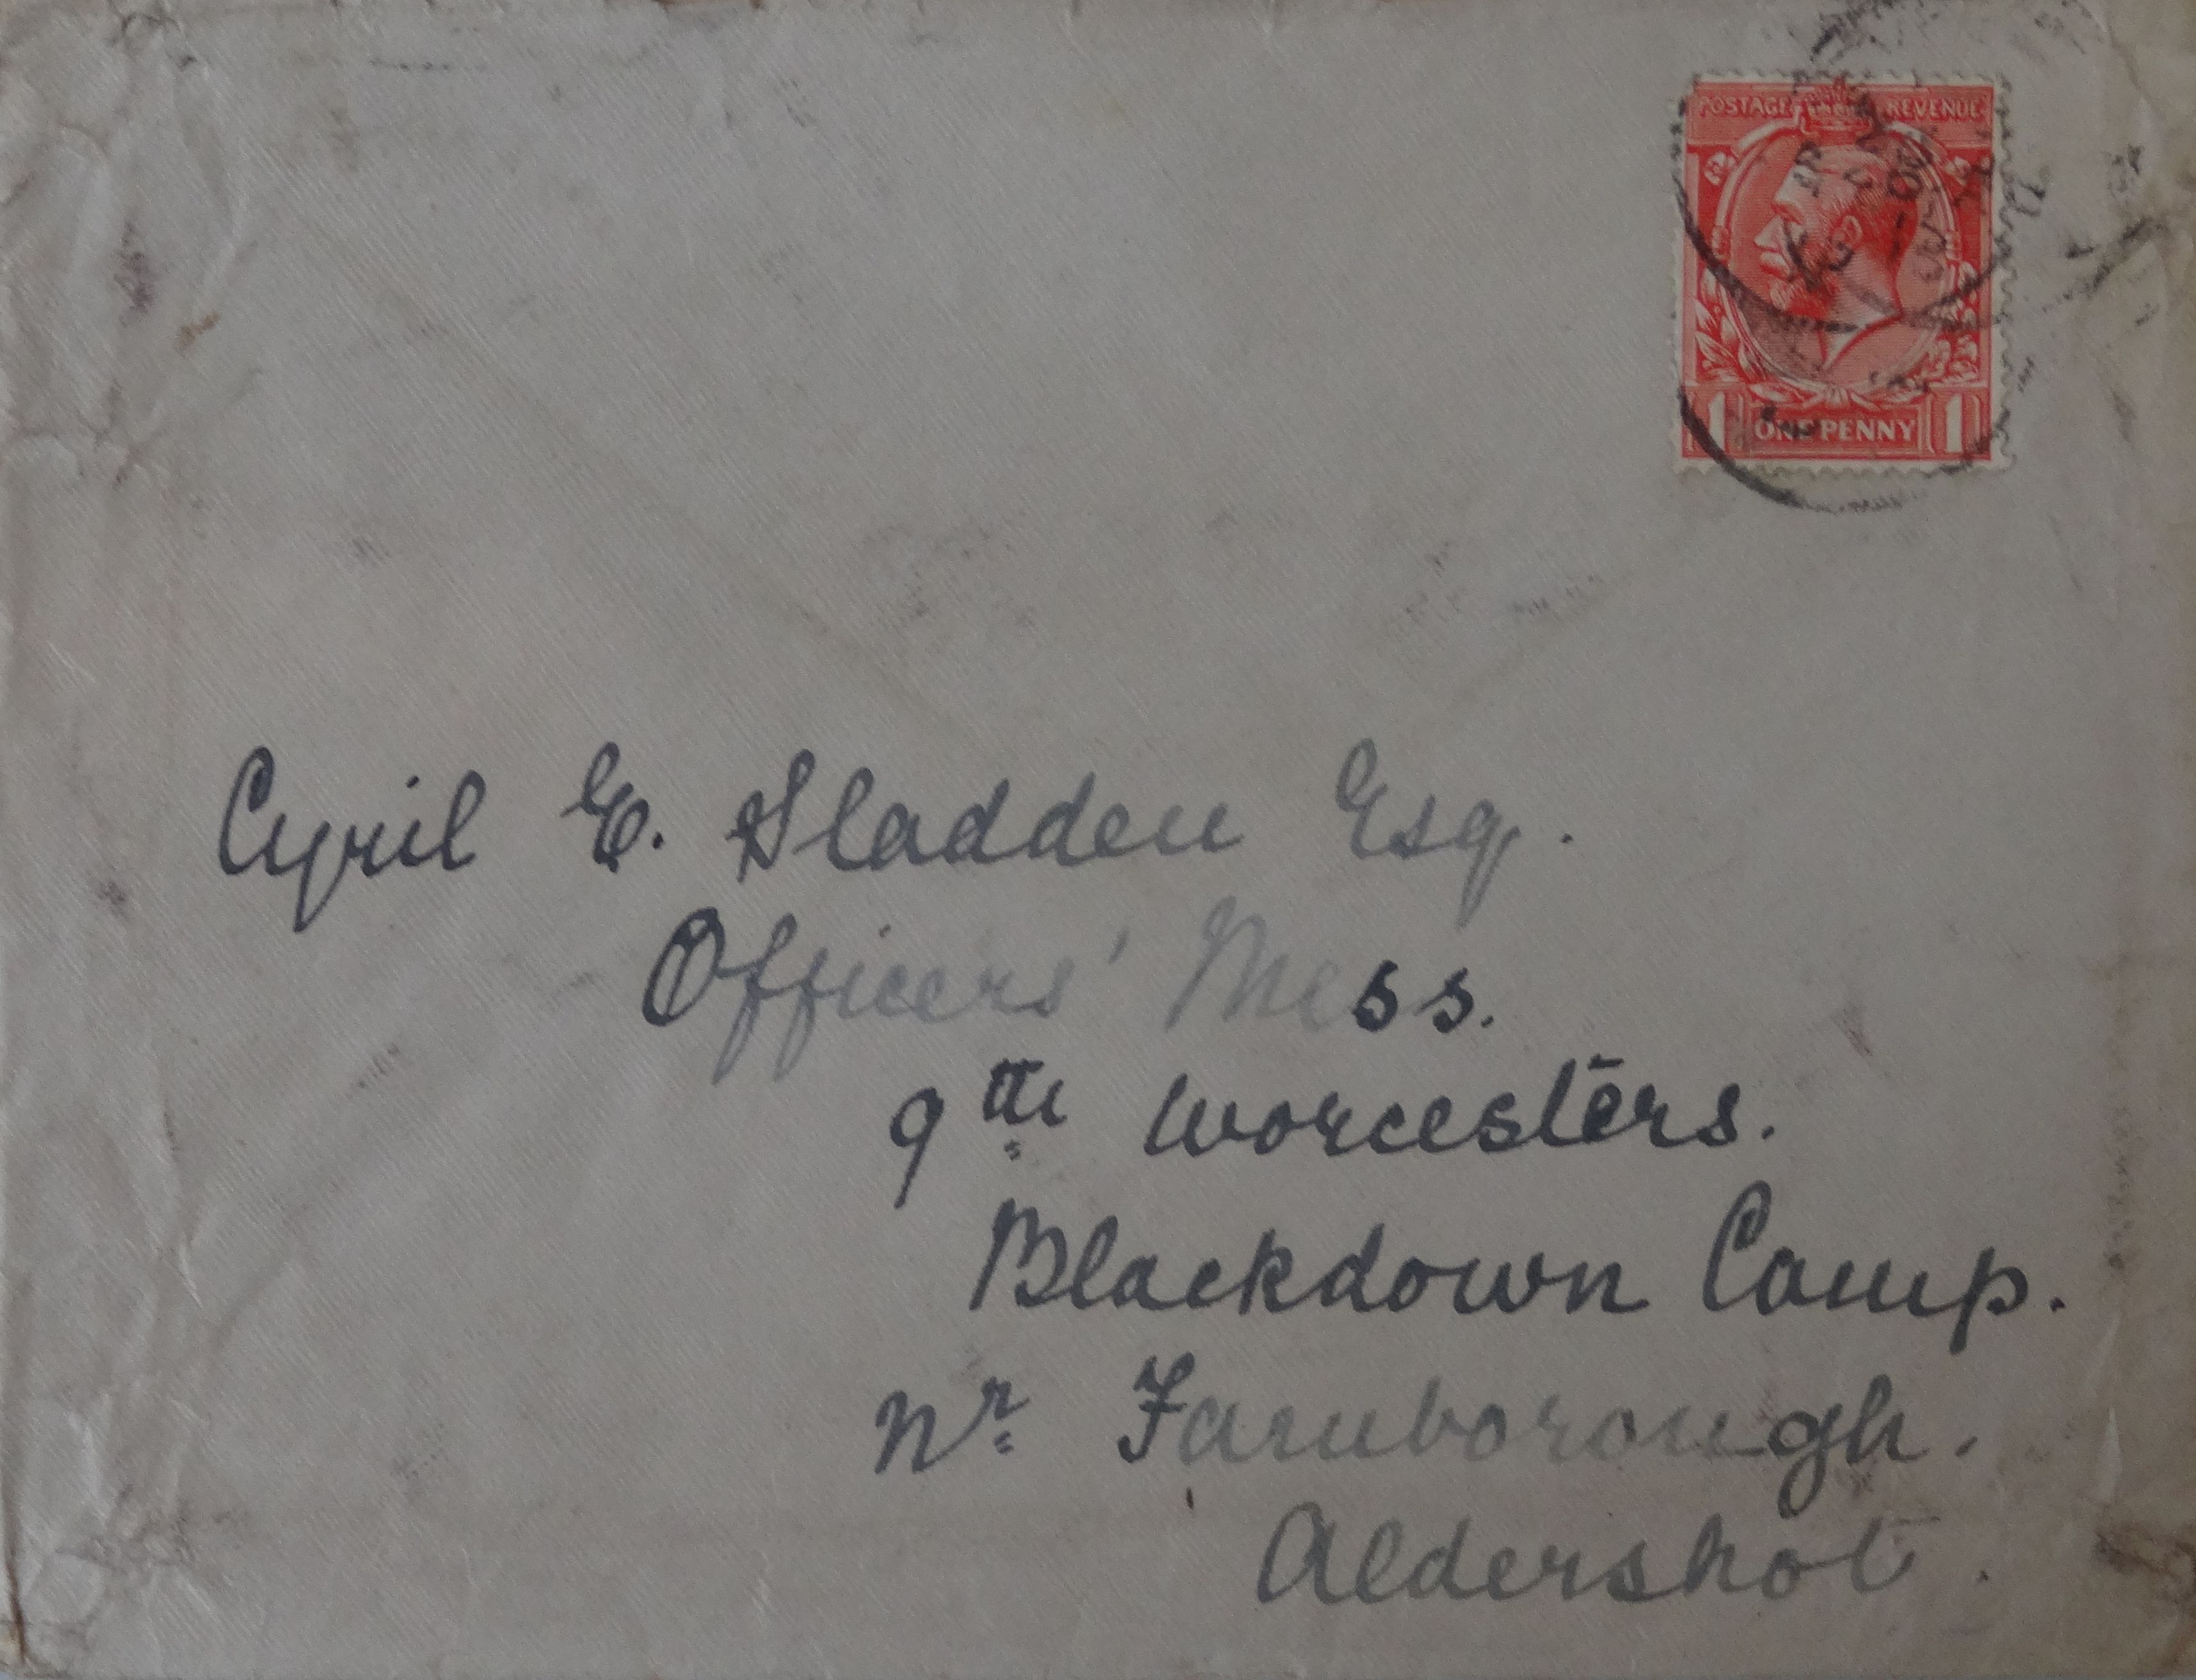 POSTAGE REVENUE
1 ONE PENNY 1
Cyril E. Sladden Esq.
Officers' Mess.
9th Worcesters.
Blackdown Camp.
Nr Farnborough.
Aldershot.